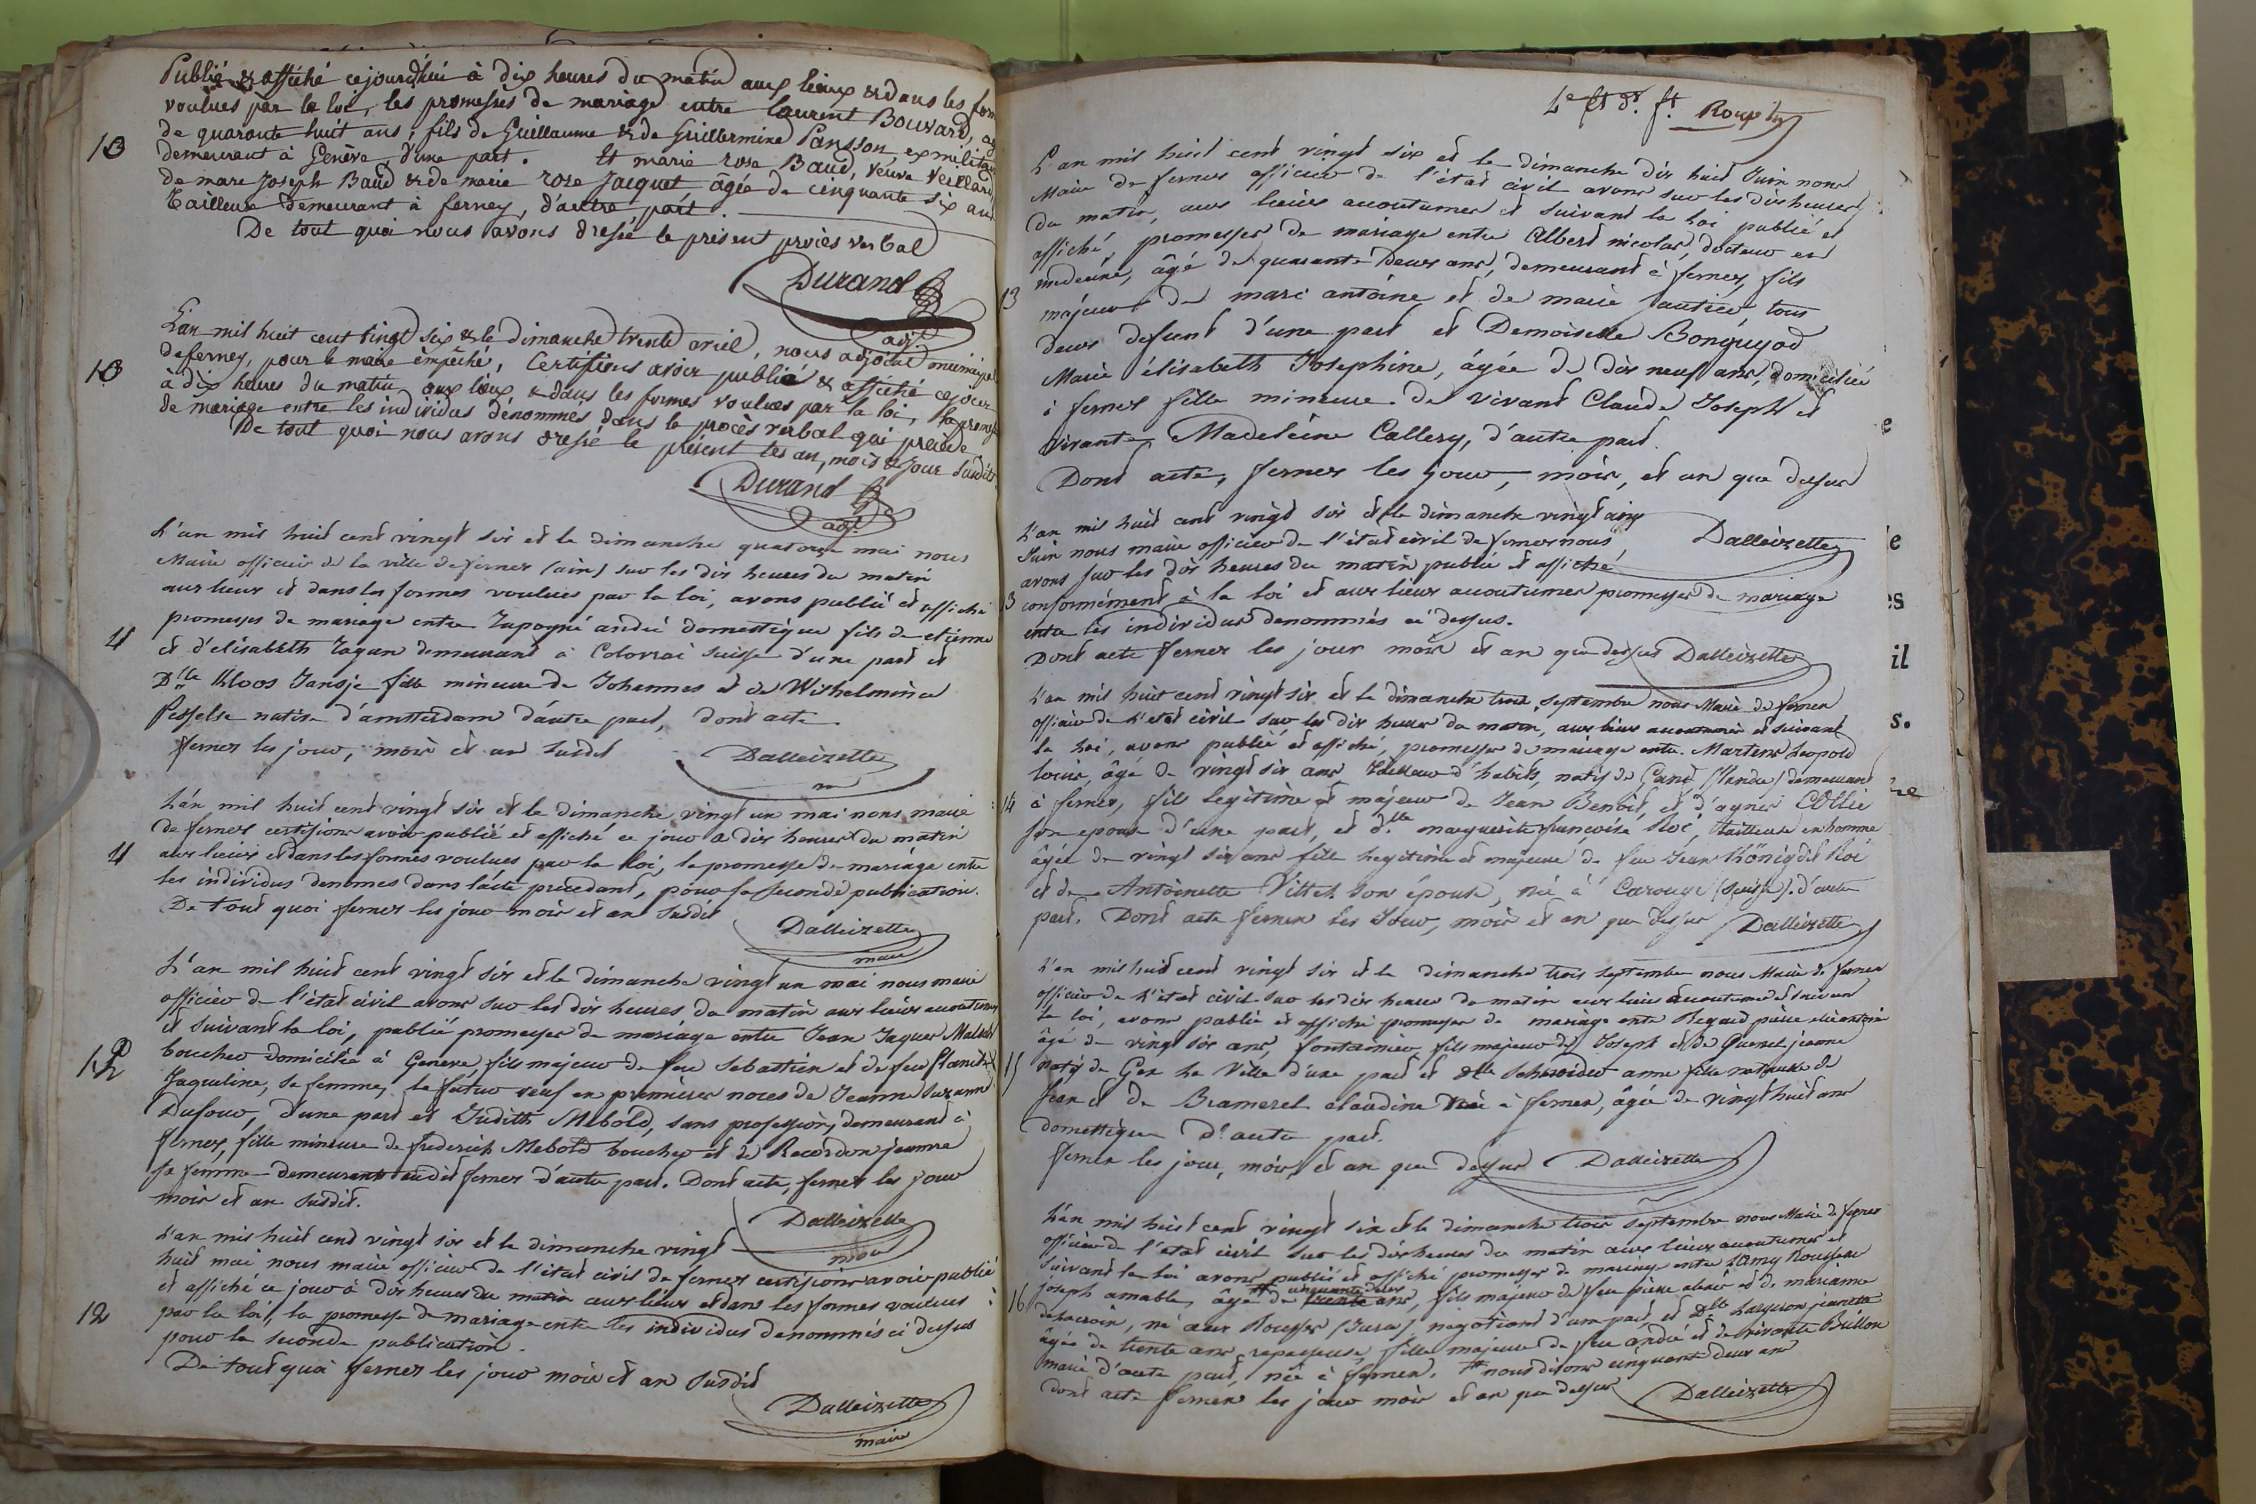 Publié & affiché cejourdhui à dix heures du matin aux lieux & dans les form
voulues par la loi, les promesses de mariage entre Laurent Bouvard, ag
de quarante huit ans, fils de Guillaume & de Guillermine Pansson exmilitair
10
demeurant à Genève, d'une part. Et marie rose Baud, veuve Veillard
de marc Joseph Baud & de marie rose Jacquet âgée de cinquante six ans
Tailleuse demeurant à ferney, d'autre part.
De tout quoi nous avons dressé le présent procès verbal
Durand
adjt
L'an mil huit cent vingt six & le dimanche trente avril, nous adjoint municipal
10
de ferney, pour le maire empêché, Certifions avoir publié & affiché ce jour
à dix heures du matin aux lieux & dans les formes voulues par la loi, la promesse
de mariage entre les individus dénommés dans le procès verbal qui précède
De tout quoi nous avons dressé le présent les an, mois & jour susdits
Durand
adjt
L'an mil huit cent vingt six et le dimanche quatorze mai nous
Maire officier de la ville de fernex (ain) sur les dix heures du matin
aux lieux et dans les formes voulues par la loi, avons publié et affiché
promesses de mariage entre Zapogné andré domestique fils de etienne
11
et d'elisabeth Zagan demeurant à Colovrai Suisse d'une part et
Dlle Kloos Jansje fille mineure de Johannes et de Wilhelmine
Pesselse native d'amsterdam d'autre part, dont acte
fernex les jour, mois et an susdit
Dalleizette
m
L'an mil huit cent vingt six et le dimanche vingt un mai nous maire
de fernex certifions avoir publié et affiché ce jour à dix heures du matin
11
aux lieux et dans les formes voulues par la loi, la promesse de mariage entre
les individus denomes dans l'acte precedant, pour sa seconde publication.
De tout quoi fernex les jour mois et an susdit
Dalleizette
maire
L'an mil huit cent vingt six et le dimanche vingt un mai nous maire
officier de l'état civil avons sur les dix heures du matin aux lieux accoutumes
et suivant la loi, publié promesses de mariage entre Jean Jaques
12
boucher domicilié à Geneve fils majeur de feu Sebastien et de feu
Jaqueline, sa femme, le futur veuf en premières noces de Jeanne Suzanne
Dufour, d'une part et Judith Mebold, sans profession, demeurant à
fernex, fille mineure de frederich Mebold boucher et de Recordon jeanne
sa femme demeurant audit fernex d'autre part. Dont acte, fernex les jour
mois et an susdit.
Dalleizette
maire
L'an mil huit cent vingt six et le dimanche vingt
huit mai nous maire officier de l'état civil de fernex certifions avoir publié
et affiché ce jour à dix heures du matin aux lieux et dans les formes voulues
12
par la loi, la promesse de mariage entre les individus denommés ci dessus
pour la seconde publication.
De tout quoi fernex les jour mois et an susdit
Dalleizette
maire
L'an mil huit cent vingt six et le dimanche dix huit Juin nous
Maire de fernex officier de l'état civil avons sur les dix heures
du matin, aux lieux accoutumes et suivant la loi publié et
affiché, promesses de mariage entre Albert nicolas, docteur en
medecine, âgé de quarante deux ans, demeurant à fernex, fils
13
majeur de marc antoine et de marie tous
deux defunt d'une part et Demoiselle Bonguyod
Marie élisabeth Josephine, âgée de dix neuf ans, domiciliée
à fernex fille mineure de vivant Claude Joseph et
vivante Madeleine Callery, d'autre part.
Dont acte, fernex les jour, mois, et an que dessus
Dalleizette
L'an mil huit cent vingt six et le dimanche vingt cinq
Juin nous maire officier de l'état civil de fernex nous
avons sur les dix heures du matin publié et affiché
3
conformément à la loi et aux lieux accoutumes promesses de mariage
entre les individus denommés ci dessus.
Dont acte fernex les jour mois et an que dessus Dalleizette
L'an mil huit cent vingt six et le dimanche trois septembre nous Maire de fernex
officier de l'etat civil sur les dix heures du matin, aux lieux accoutumés et suivant
la loi, avons publié et affiché, promesses de mariage entre Martens Leopold
louis, âgé de vingt six ans, tailleur d'habits, natif de Gand (flandre) demeurant
14
à fernex, fils legitime et majeur de Jean Benoit, et d'agnès Collie
son epouse d'une part, et dlle marguerite françoise Roi, tailleuse en homme
âgée de vingt six ans fille legitime et majeure de feu Jean König dit Roi
et de Antoinette Vittet son épouse, née à Carouge (Suisse). d'autre
part. Dont acte fernex les Jour, mois et an que dessus Dalleizette
L'an mil huit cent vingt six et le dimanche trois septembre nous Maire de fernex
officier de l'état civil sur les dix heures du matin aux lieux accoutumés et suivant
la loi, avons publié et affiché promesses de mariage entre Regard pierre
âgé de vingt six ans, fontainier fils majeur de Joseph et de Guenet jeanne
15
natif de Gex la Ville d'une part et dlle Schneider anne fille naturelle de
Jean et de Brameret claudine née à fernex, âgée de vingt huit ans
domestique d'autre part.
fernex les jour, mois, et an que dessus Dalleizette
L'an mil huit cent vingt six et le dimanche trois septembre nous Maire de fernex
officier de l'etat civil sur les dix heures du matin aux lieux accoutumes et
suivant la loi avons publié et affiché promesses de mariage entre Lamy Rousseau
joseph amable, âgé de trente ans, cinquante deux fils majeur de feu pierre et de mariane
16
delacroix, né aux Rousses (Jura) negotiant d'une part, et dlle jeanette
âgée de trente ans, repasseuse, fille majeure de feu andré et de vivante Bullon
marie d'autre part, née à fernex. nous disons cinquante deux ans
dont acte fernex les jour mois et an que dessus Dalleizette
e
le
es
il
s.